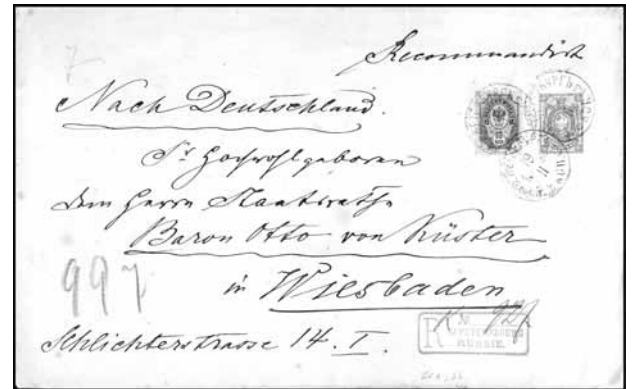 7
Recommandirt
Nach Deutschland.
Sr Hochwohlgeboren
dem Herrn Staatsrathe
Baron Otto von Küster
997
in Wiesbaden
Schlichterstrasse 14. I.
R
RUSSIE.